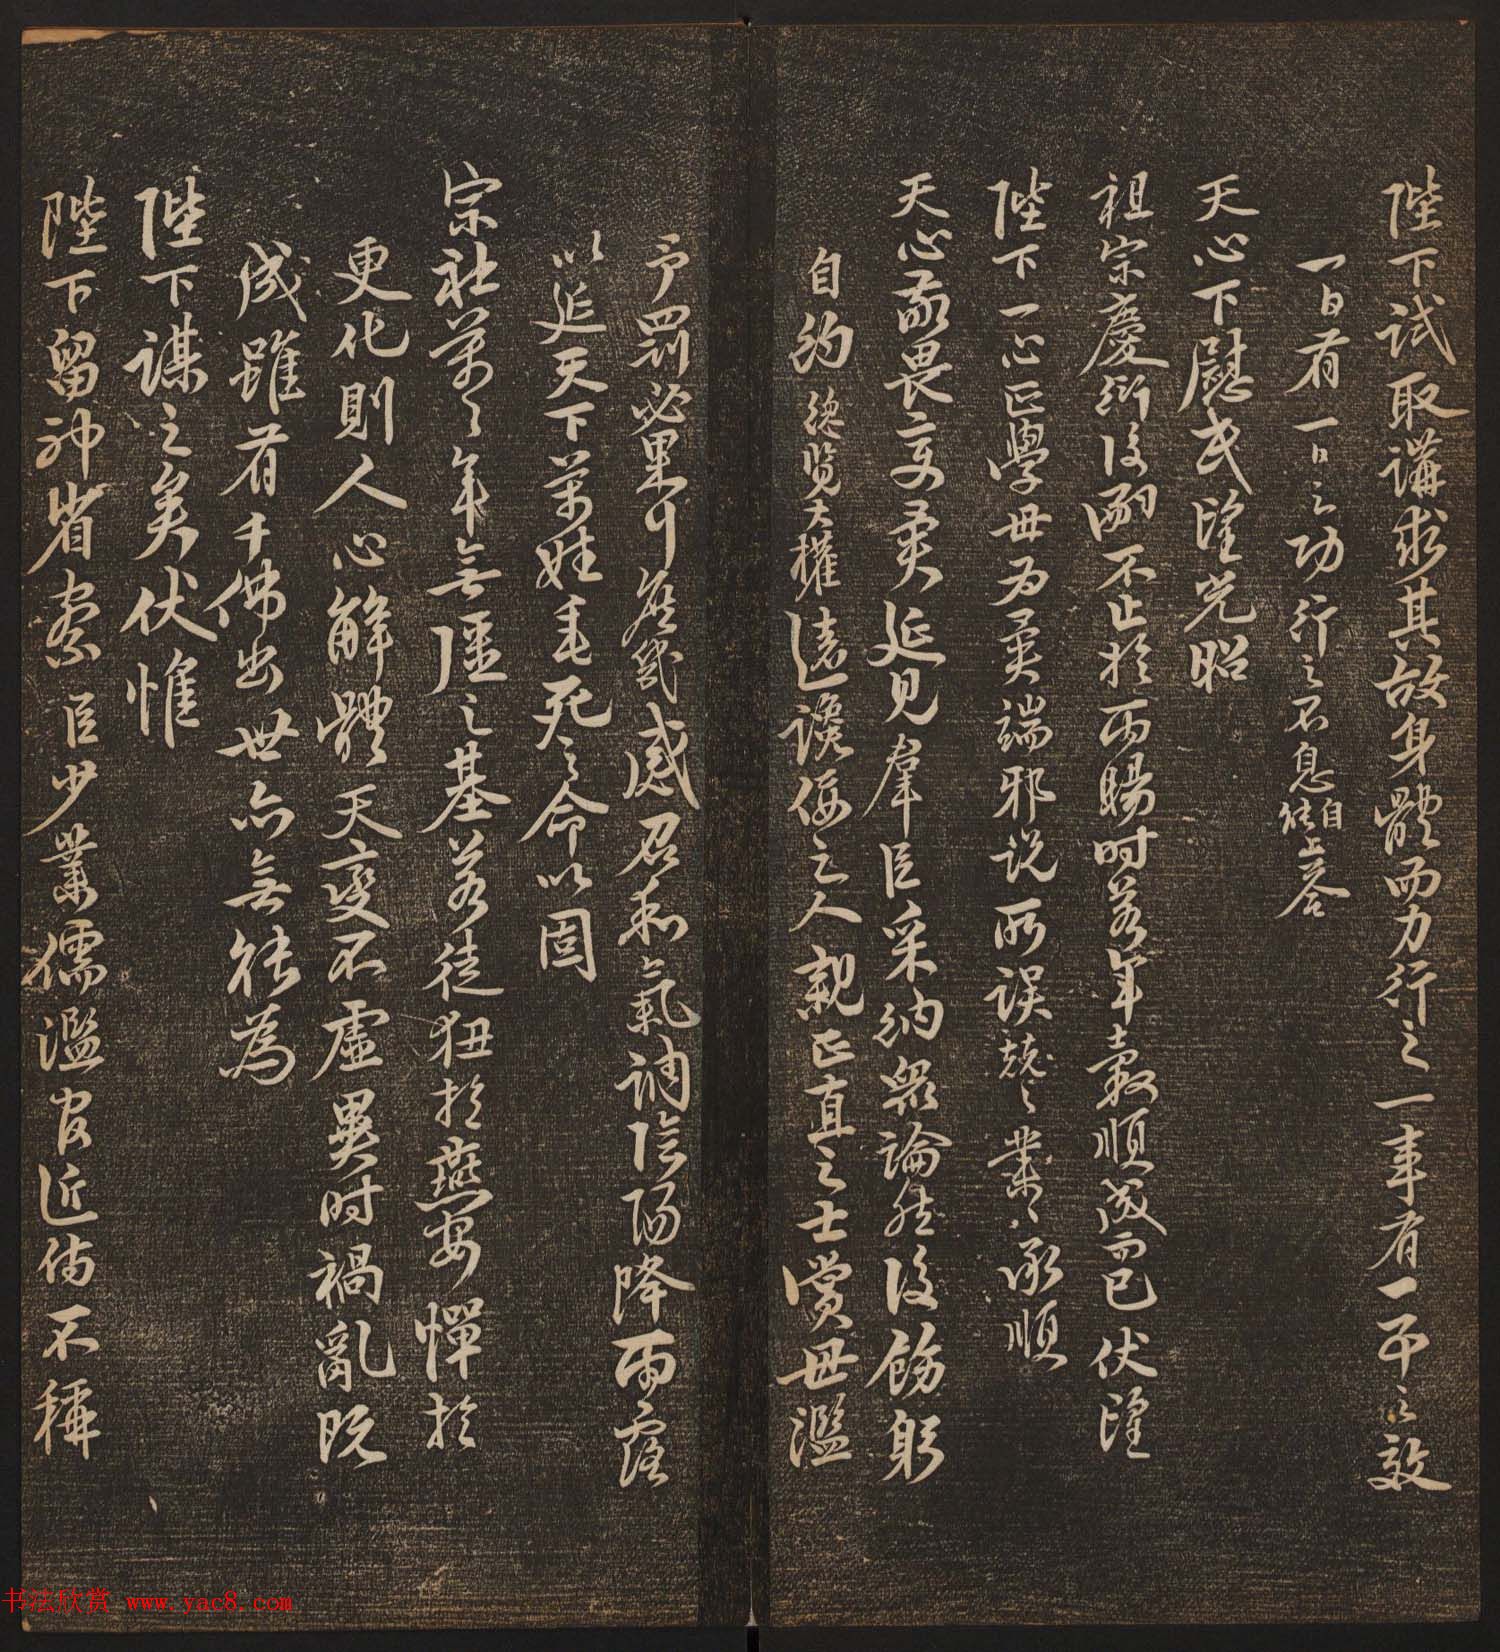 陛下試取講求其故身體而力行之一事有一事之效
一日有一日之功行之不息自能上荅
天心下慰民望光昭
祖宗慶衍後嗣不止於雨暘時若年穀順成而已伏望
陛下一心正學毋為異端邪說所誤兢兢業業承順
天心敬畏变異延見羣臣采納衆論然後飭躬
自約總览大權遠讒佞之人親正直之士賞毋濫
予罰必果行庶幾感召和氣調陰陽降雨露
以延天下萬姓垂死之命以固
宗社萬萬年無疆之基若徒狃於燕安憚於
更化則人心解體天變不虛異时禍亂既
成雖有千佛出世亦無能為
陛下謀之矣伏惟
陛下留神省察臣少業儒濫官近侍不稱
书法欣赏 www.yac8.com